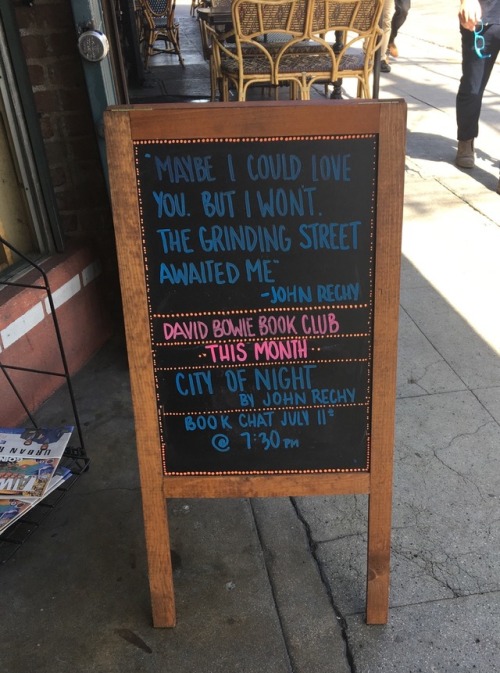 "MAYBE I COULD LOVE
YOU. BUT I WON'T.
THE GRINDING STREET
AWAITED ME"
-JOHN RECHY
DAVID BOWIE BOOK CLUB
THIS MONTH
CITY OF NIGHT
BY JOHN RECHY
BOOK CHAT JULY 11
@ 7:30 PM
URBAN